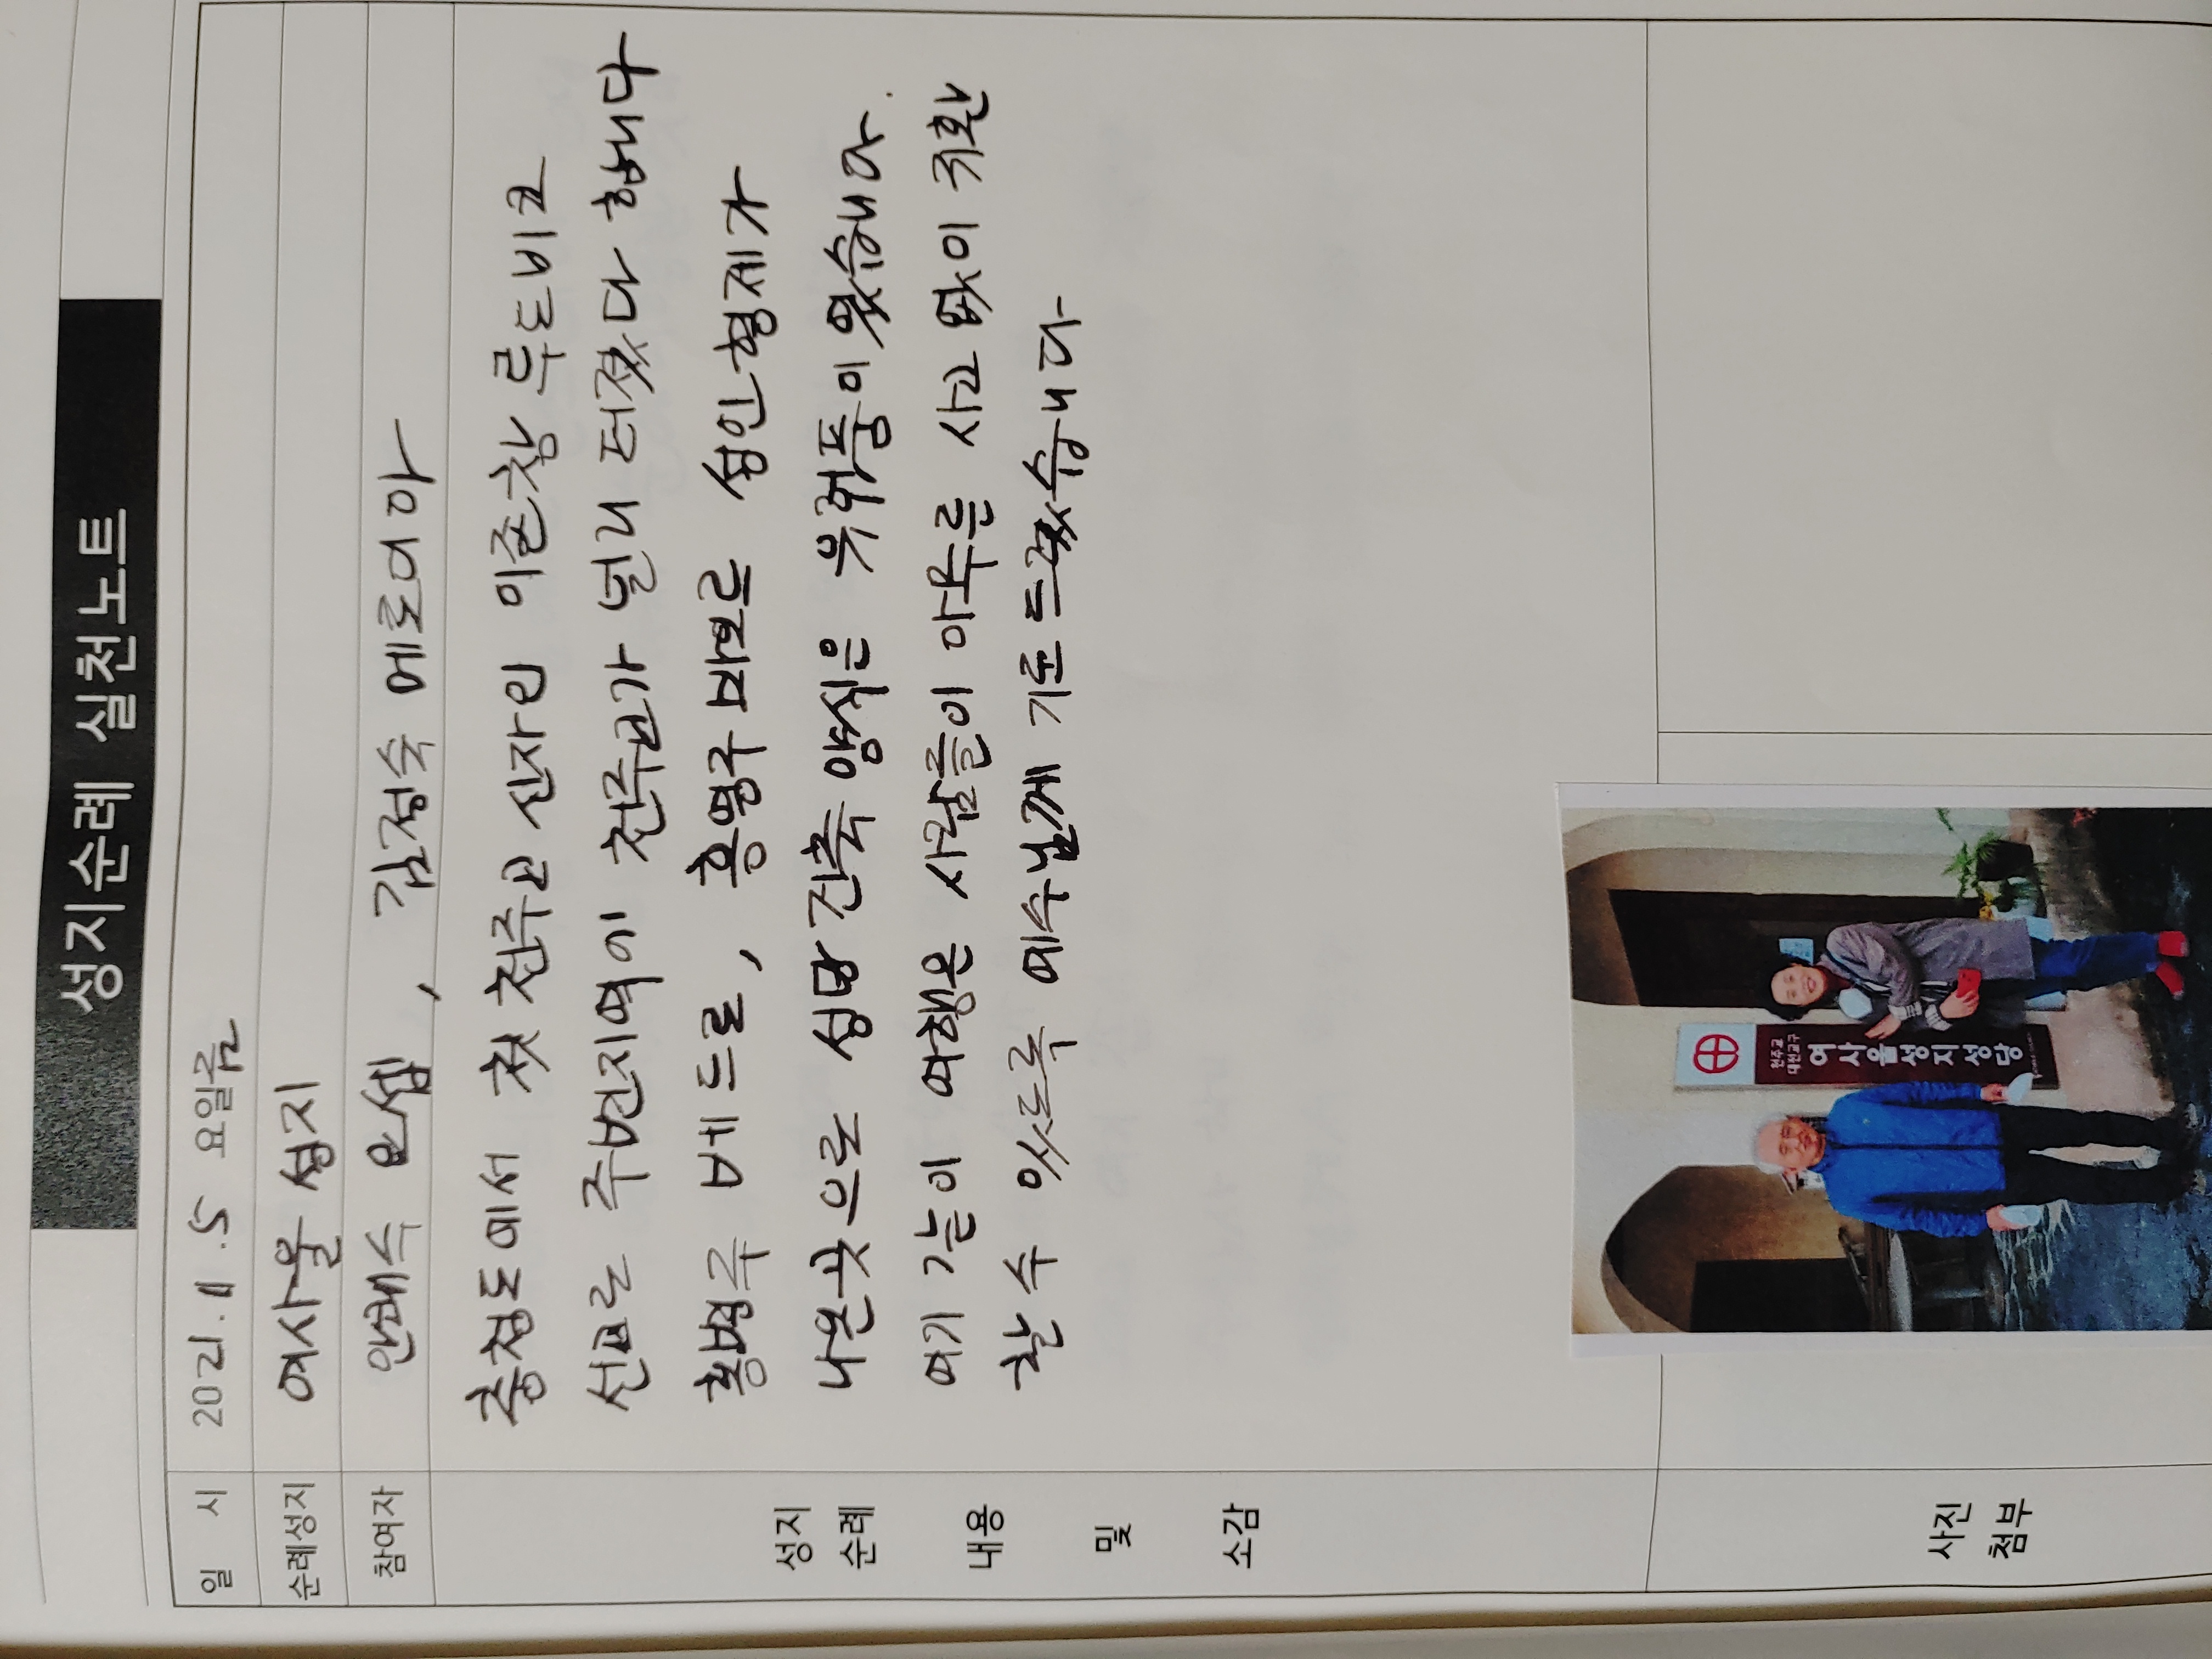 성지순례 실천노트
일 시 2021. 11. 5 요일금
순례성지 여사울 성지
참여자 안래숙 요셉, 김정숙 메로여아
충청도에서 첫 천주교 신자인 이존창 루도비코
선교로 주변지역이 천주교가 널리 터졌다 합니다
황병주 베드로, 홍병주 바오로 성인형제가
나온곳으로 성당건축 양식은 유럽품이 였습니다.
여기 가는이 여행은 사람들이 아무른 사고 없이 귀환
할 수 있도록 예수님께 기로 드렸습니다
성지
순례
내용
및
소감
사진
첨부
천주교
대전교구
여사울성지성당